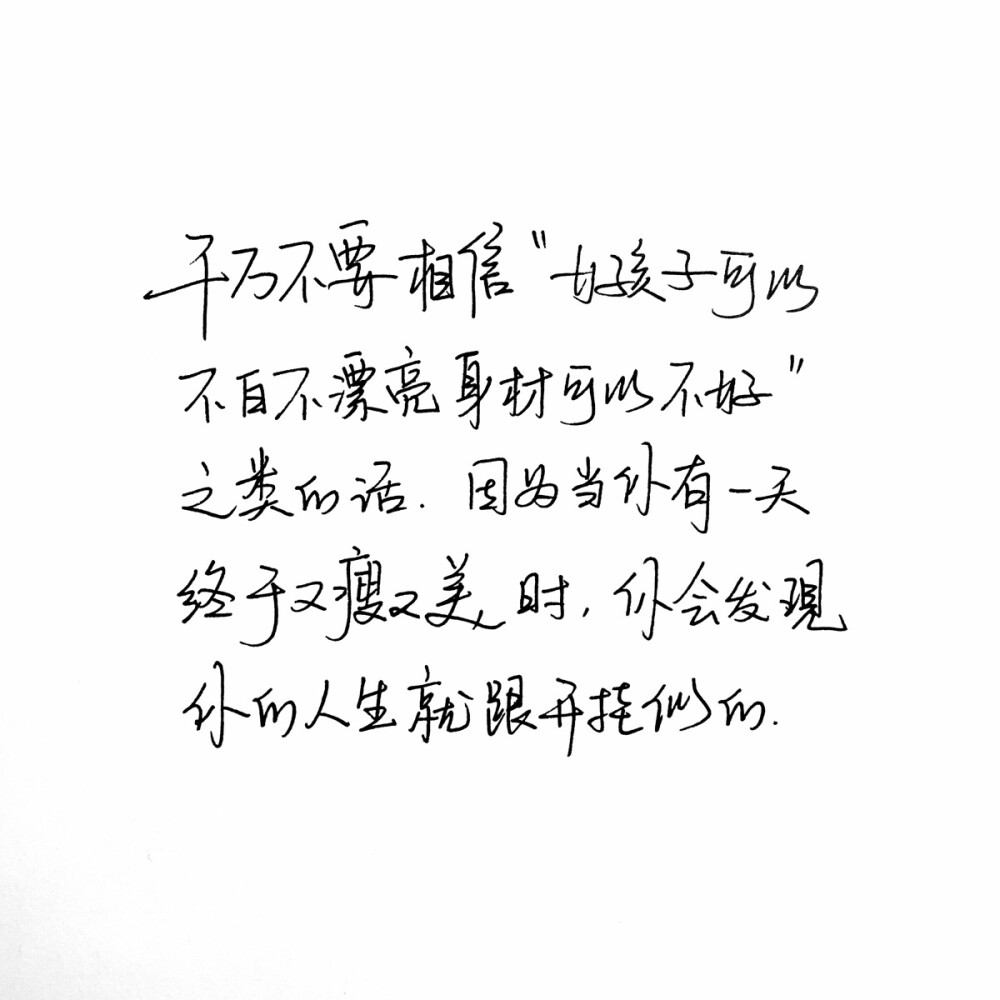 千万不要相信"女孩子可以
不白不漂亮身材可以不好"
之类的话.因为当你有一天
终于又瘦又美时,你会发現
你的人生就跟开挂似的.